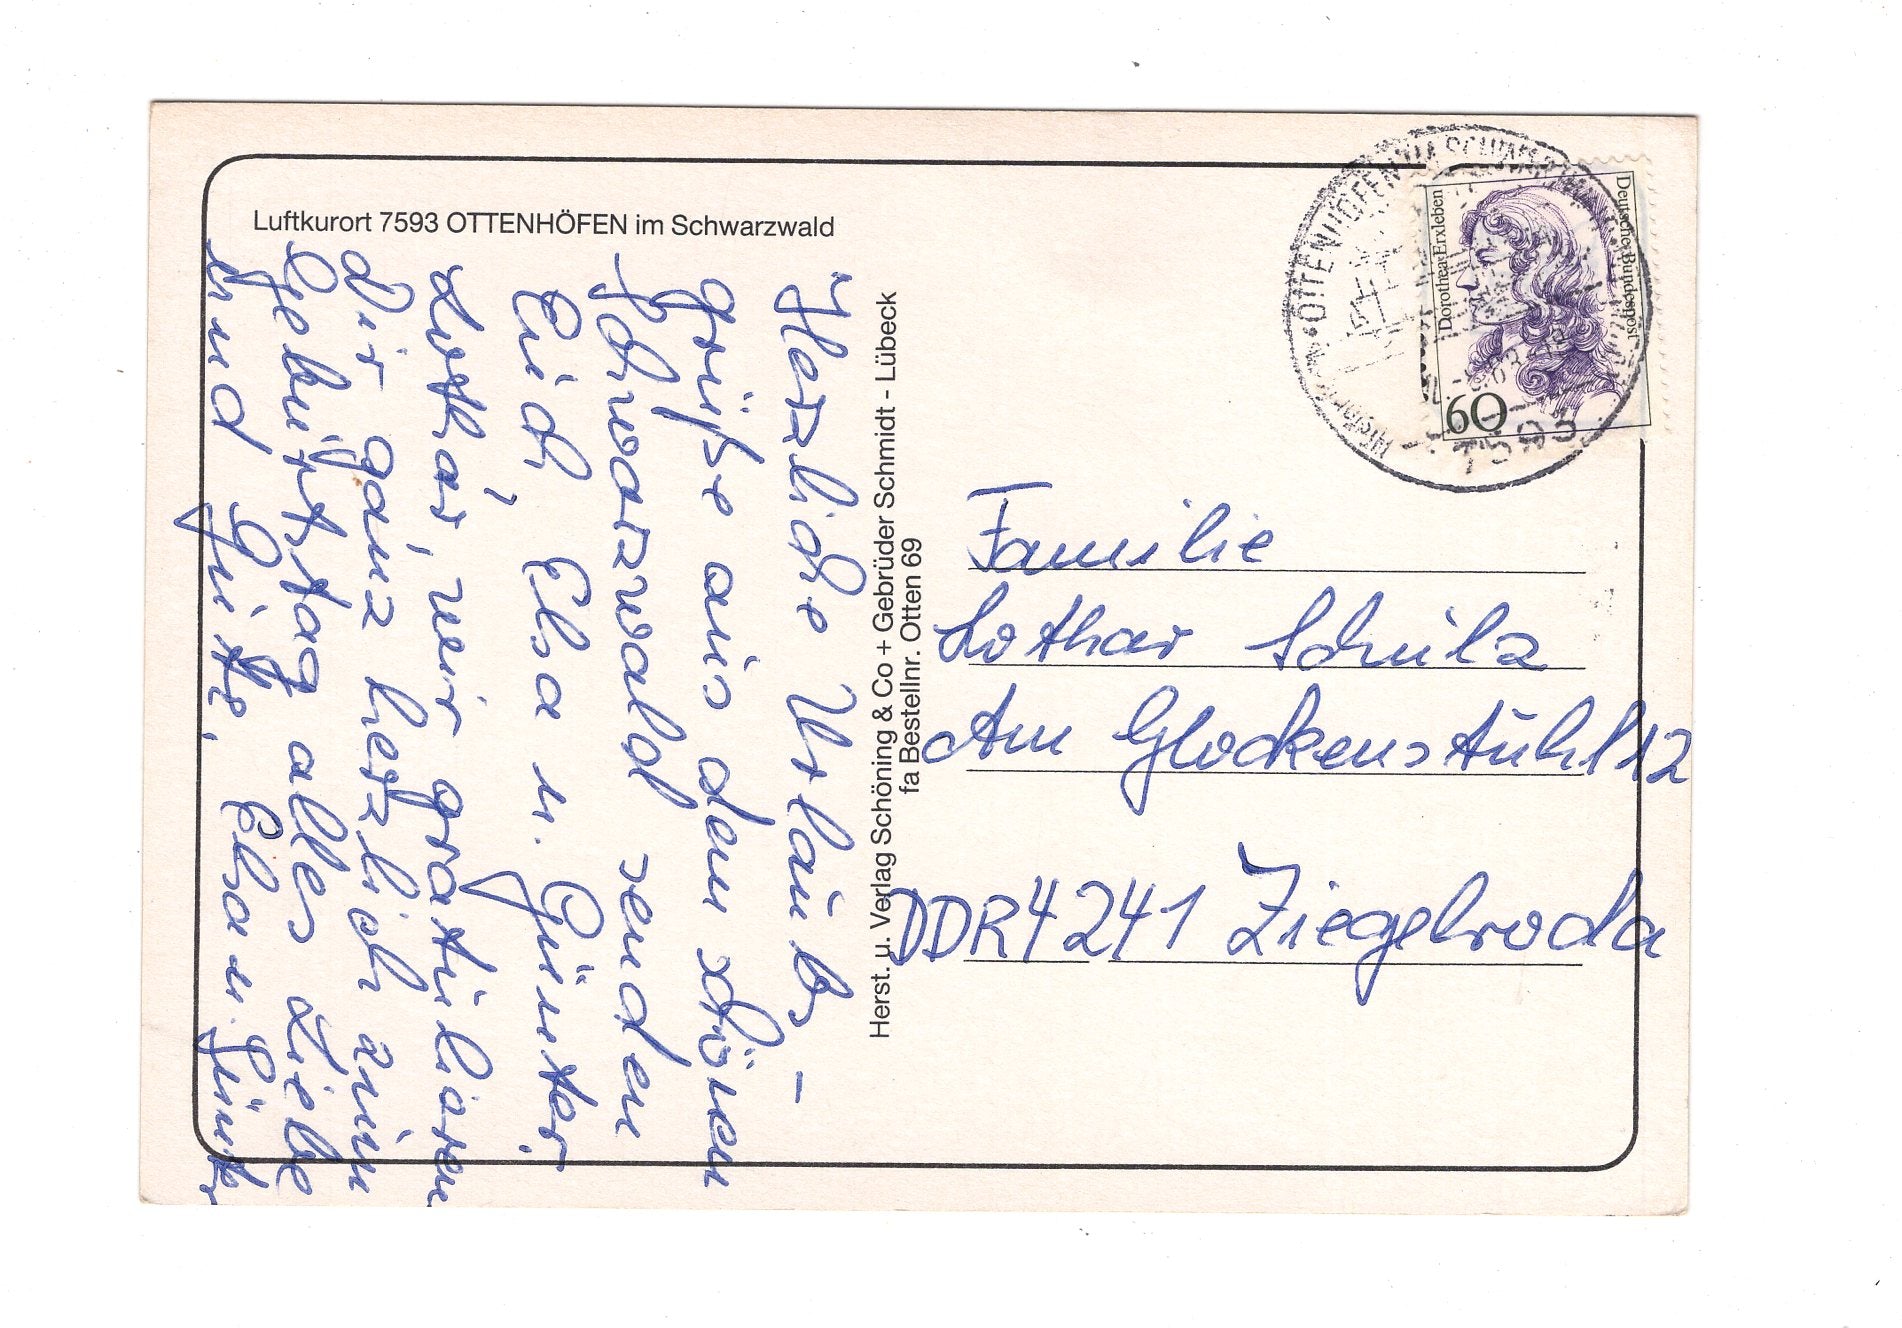 Luftkurort 7593 OTTENHÖFEN im Schwarzwald
Herzliche Urlaubs-
grüße aus dem schönen
Schwarzwald senden
Euch, Elsa u. Günter.
Lothar, wir gratulieren
Dir ganz herzlich zum
Geburtstag alles Liebe
und Gute. Elsa u. Günter
Herst. u. Verlag Schöning & Co + Gebrüder Schmidt - Lübeck
fa Bestellnr. Otten 69
OTTENHÖFEN IM SCHWARZWALD
7593
Deutsche Bundespost
Dorothea Erxleben
60
Familie
Lothar Schulz
Am Glockenstuhl 12
DDR 4241 Ziegelroda